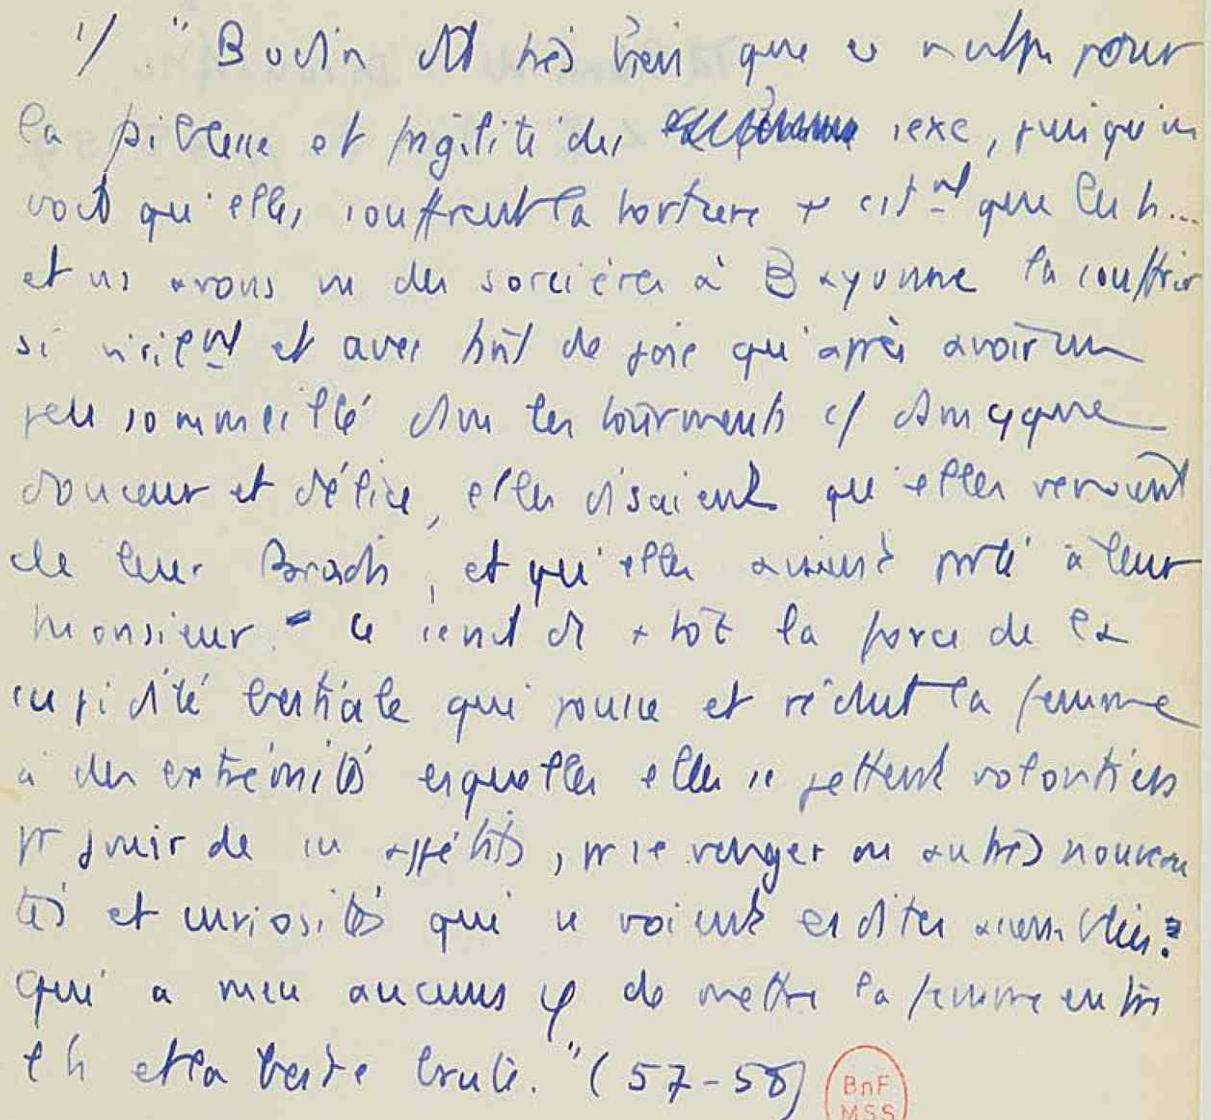 1/ "Bodin dit très bien que ce n'est pr pour
la faiblesse et fragilité du sexe, puisqu'on
voit qu'elles souffrent la torture + cstmt que les h...
et ns avons vu des sorcières à Bayonne la souffrir
si virilemt et avec tant de joie qu'après avoir un
peu sommeillé dans les tourments c/ dans qque
douceur et délice, elles disaient qu'elles venaient
de leur Paradis, et qu'elles avaient parlé à leur
Monsieur. Ce serait dc + tôt la force de la
cupidité bestiale qui pousse et réduit la femme
à des extrémités esquelles elles se jettent volontiers
pr jouir de ces appétits, pr se venger ou autres nouveau
tés et curiosités qui se voient esdites assemblées.
qui a meu aucuns φ de mettre la femme entre
l'h et la beste brute." (57-58)
BnF
MSS